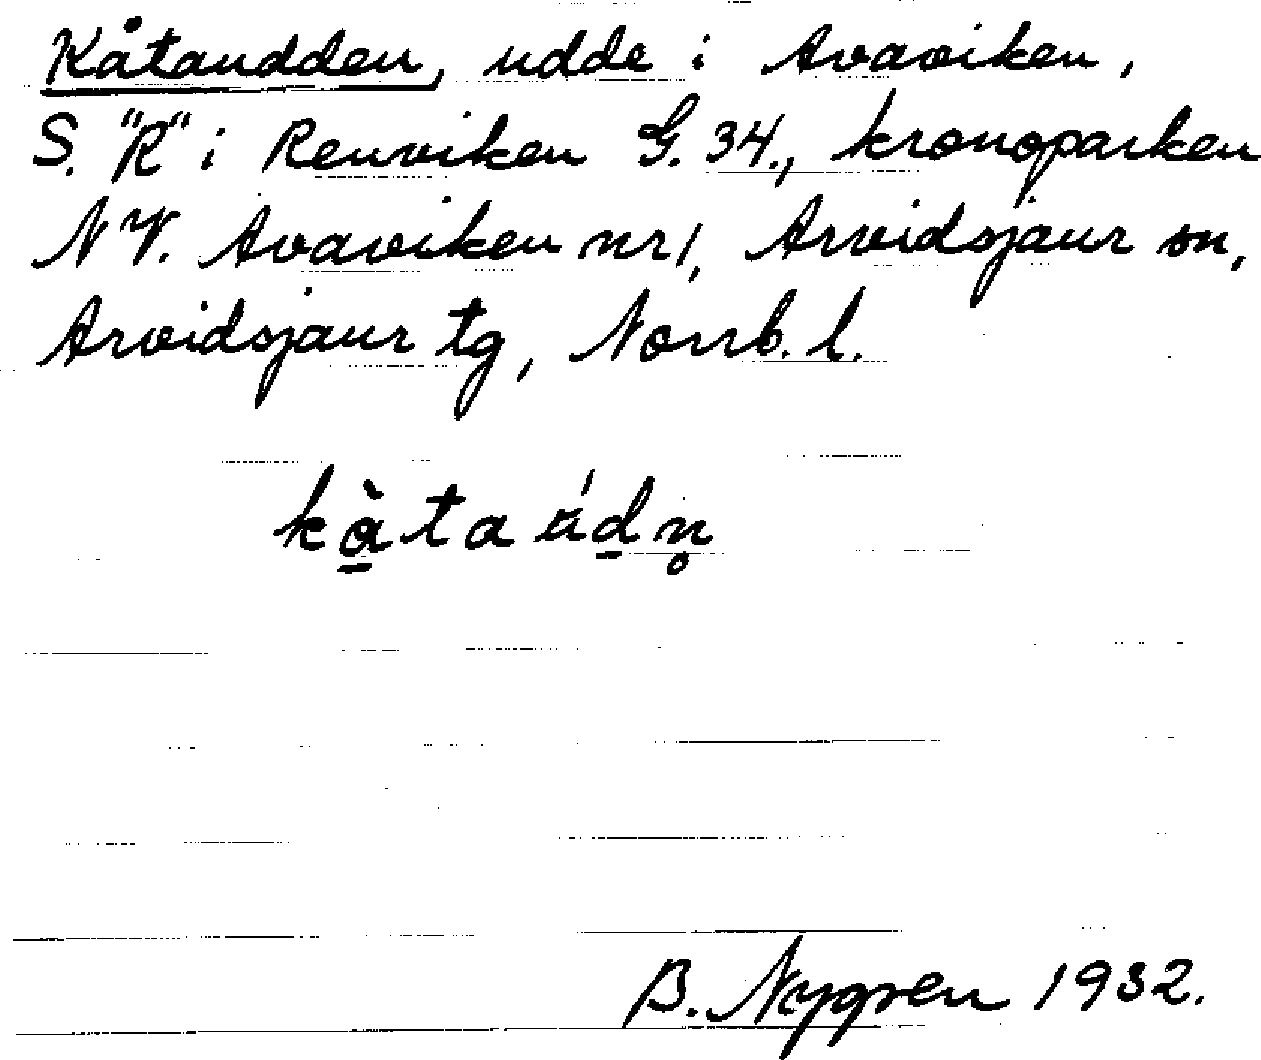 Kåtaudden, udde i Avaviken,
S. "R" i Renviken G. 34., kronoparken
NV. Avaviken nr 1, Arvidsjaur sn,
Arvidsjaur tg, Norrb. l.
kà̱ta úḏn̥
B. Nygren 1932.